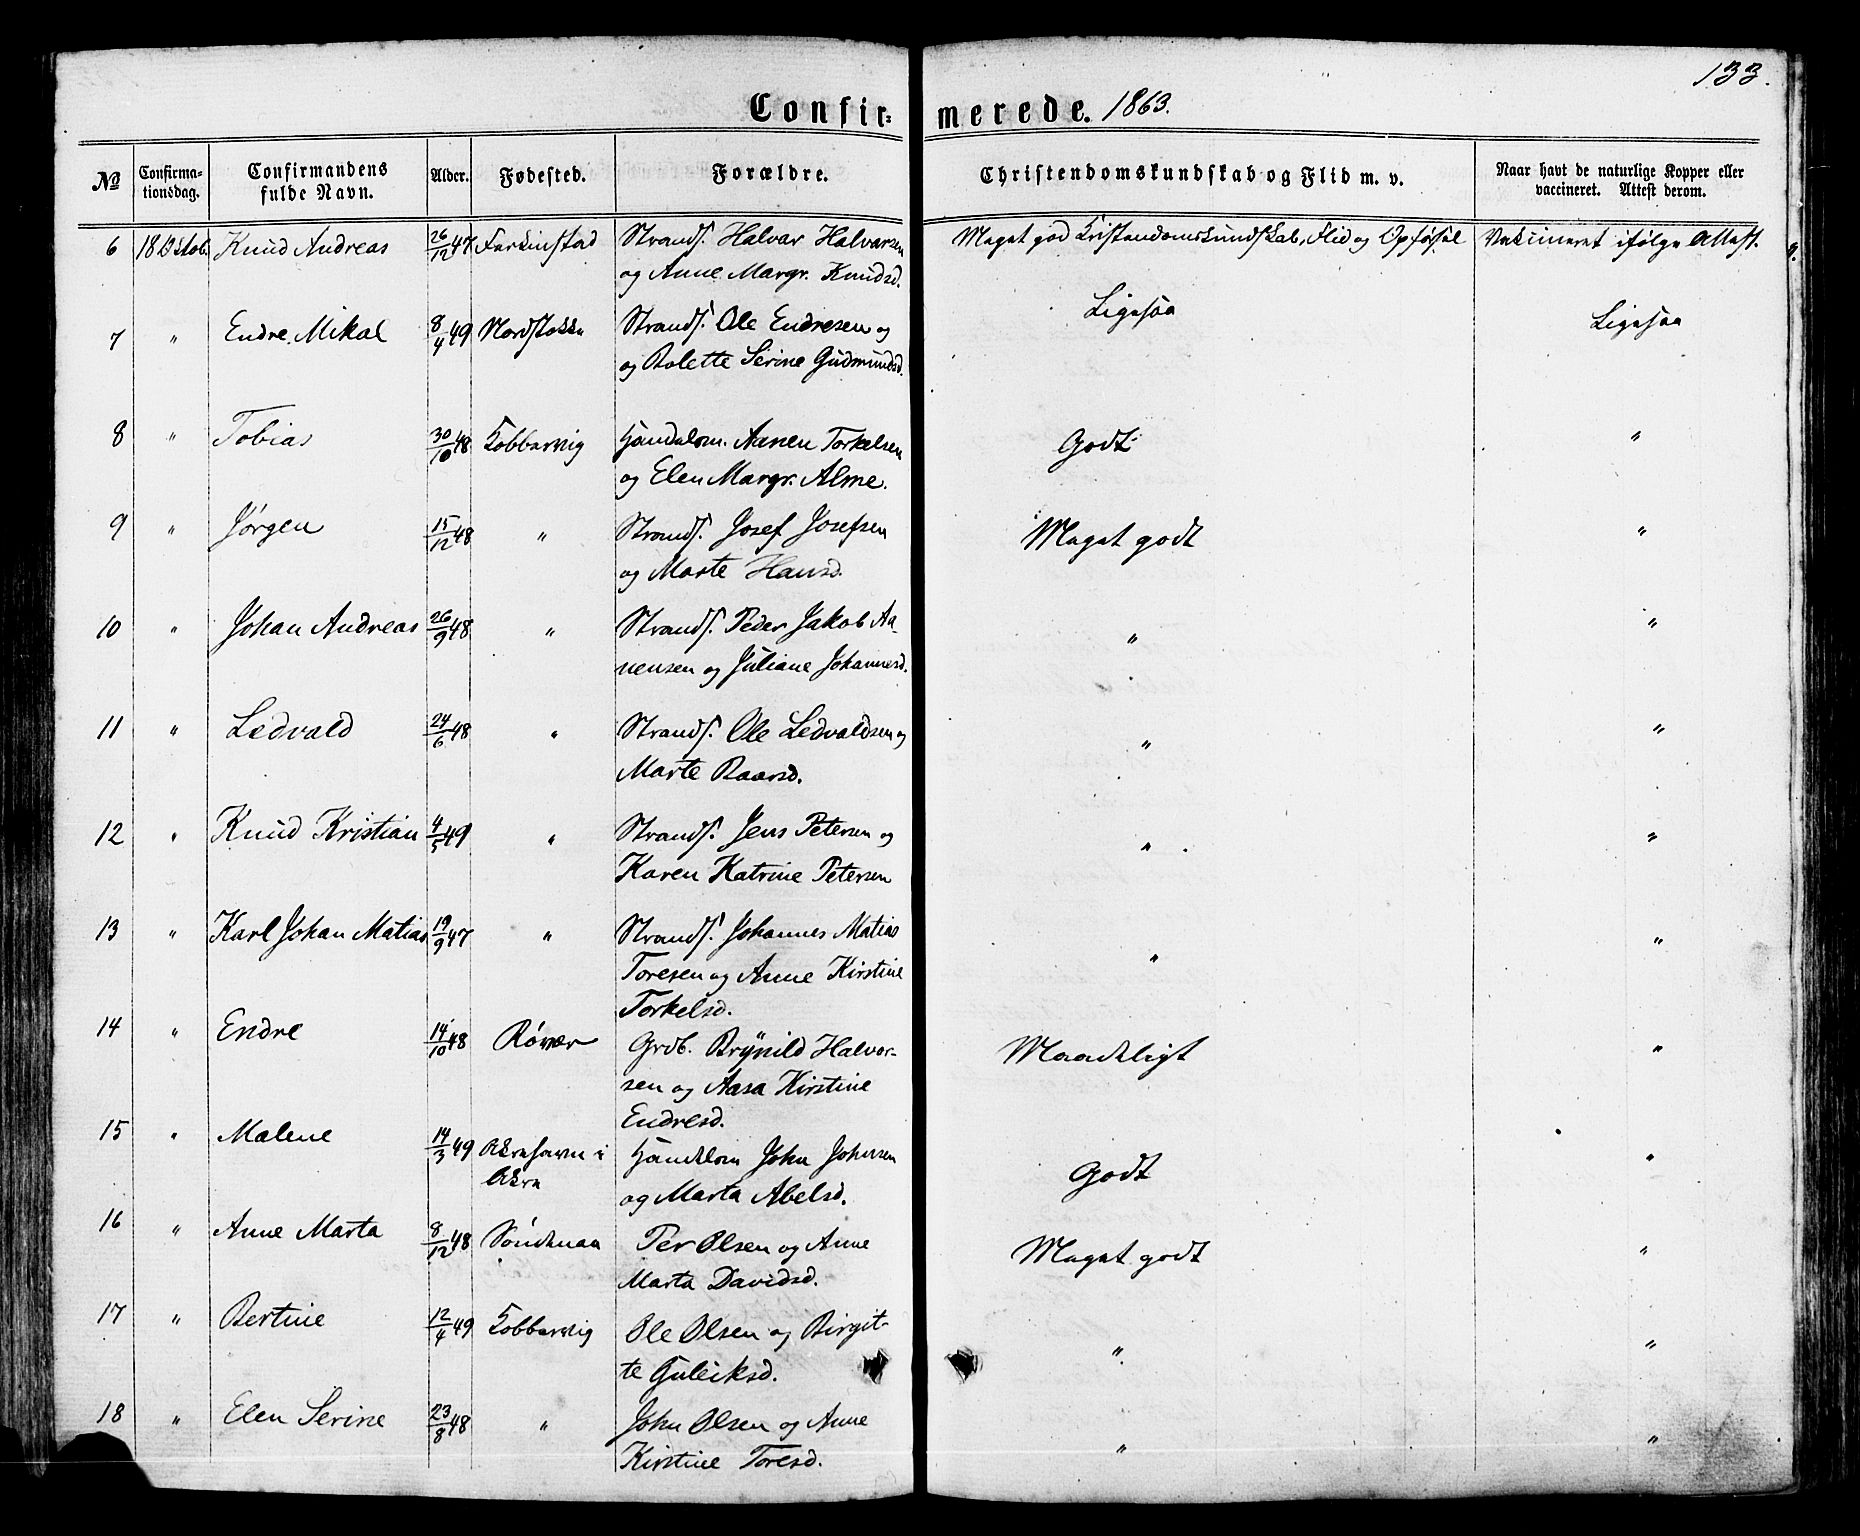 133.
Confir= merede. 1863.
No Confirma= Confirmandens Alder. Fødested. Forældre. Christendomskundskab og Flid m. v. Naar havt de naturlige Kopper eller
tionsdag. fulde Navn. vaccineret. Attest derom.
6 18 Octob. Knud Andreas 26/12 47 Ferkinstad Strands. Halvar Halvarsen Meget god Kristendomskundskab, Flid og Opførsel Vakcineret ifølge Attest.
og Anne Margr. Knudsd.
7 " Endre Mikal 8/4 49 Nordstokke Strands. Ole Endresen og Ligesaa Ligesaa
og Bolette Serine Gudmundsd.
8 " Tobias 30/10 48 Kobbervig Handelsm. Aanen Torkelsen Godt "
og Elen Margr. Alme.
9 " Jørgen 15/12 48 " Strands. Josef Josefsen Meget godt "
og Marte Hansd.
10 " Johan Andreas 26/9 48 " Strands. Peder Jakob Aa- " "
nensen og Juliane Johannesd.
11 " Ledvald 24/6 48 " Strands. Ole Ledvaldsen og " "
Marte Baarsd.
12 " Knud Kristian 4/5 49 " Strands. Jens Petersen og " "
Karen Katrine Petersen
13 " Karl Johan Matias 19/9 47 " Strands. Johannes Matias " "
Toresen og Anne Kirstine
Torkelsd.
14 " Endre 14/10 48 Røvær Grdb. Brynild Halvor- Maadeligt "
sen og Aasa Kirstine
Endresd.
15 " Malene 14/3 49 Akrehavn i Handelsm John Johnsen Godt "
Akre og Marta Abelsd.
16 " Anne Marta 8/12 48 Søndenaa Per Olsen og Anne Meget godt "
Marta Davidsd.
17 " Bertine 12/4 49 Kobbervig Ole Olsen og Birgit- " "
te Guleiksd.
18 " Elen Serine 23/8 48 " John Olsen og Anne " "
Kirstine Toresd.